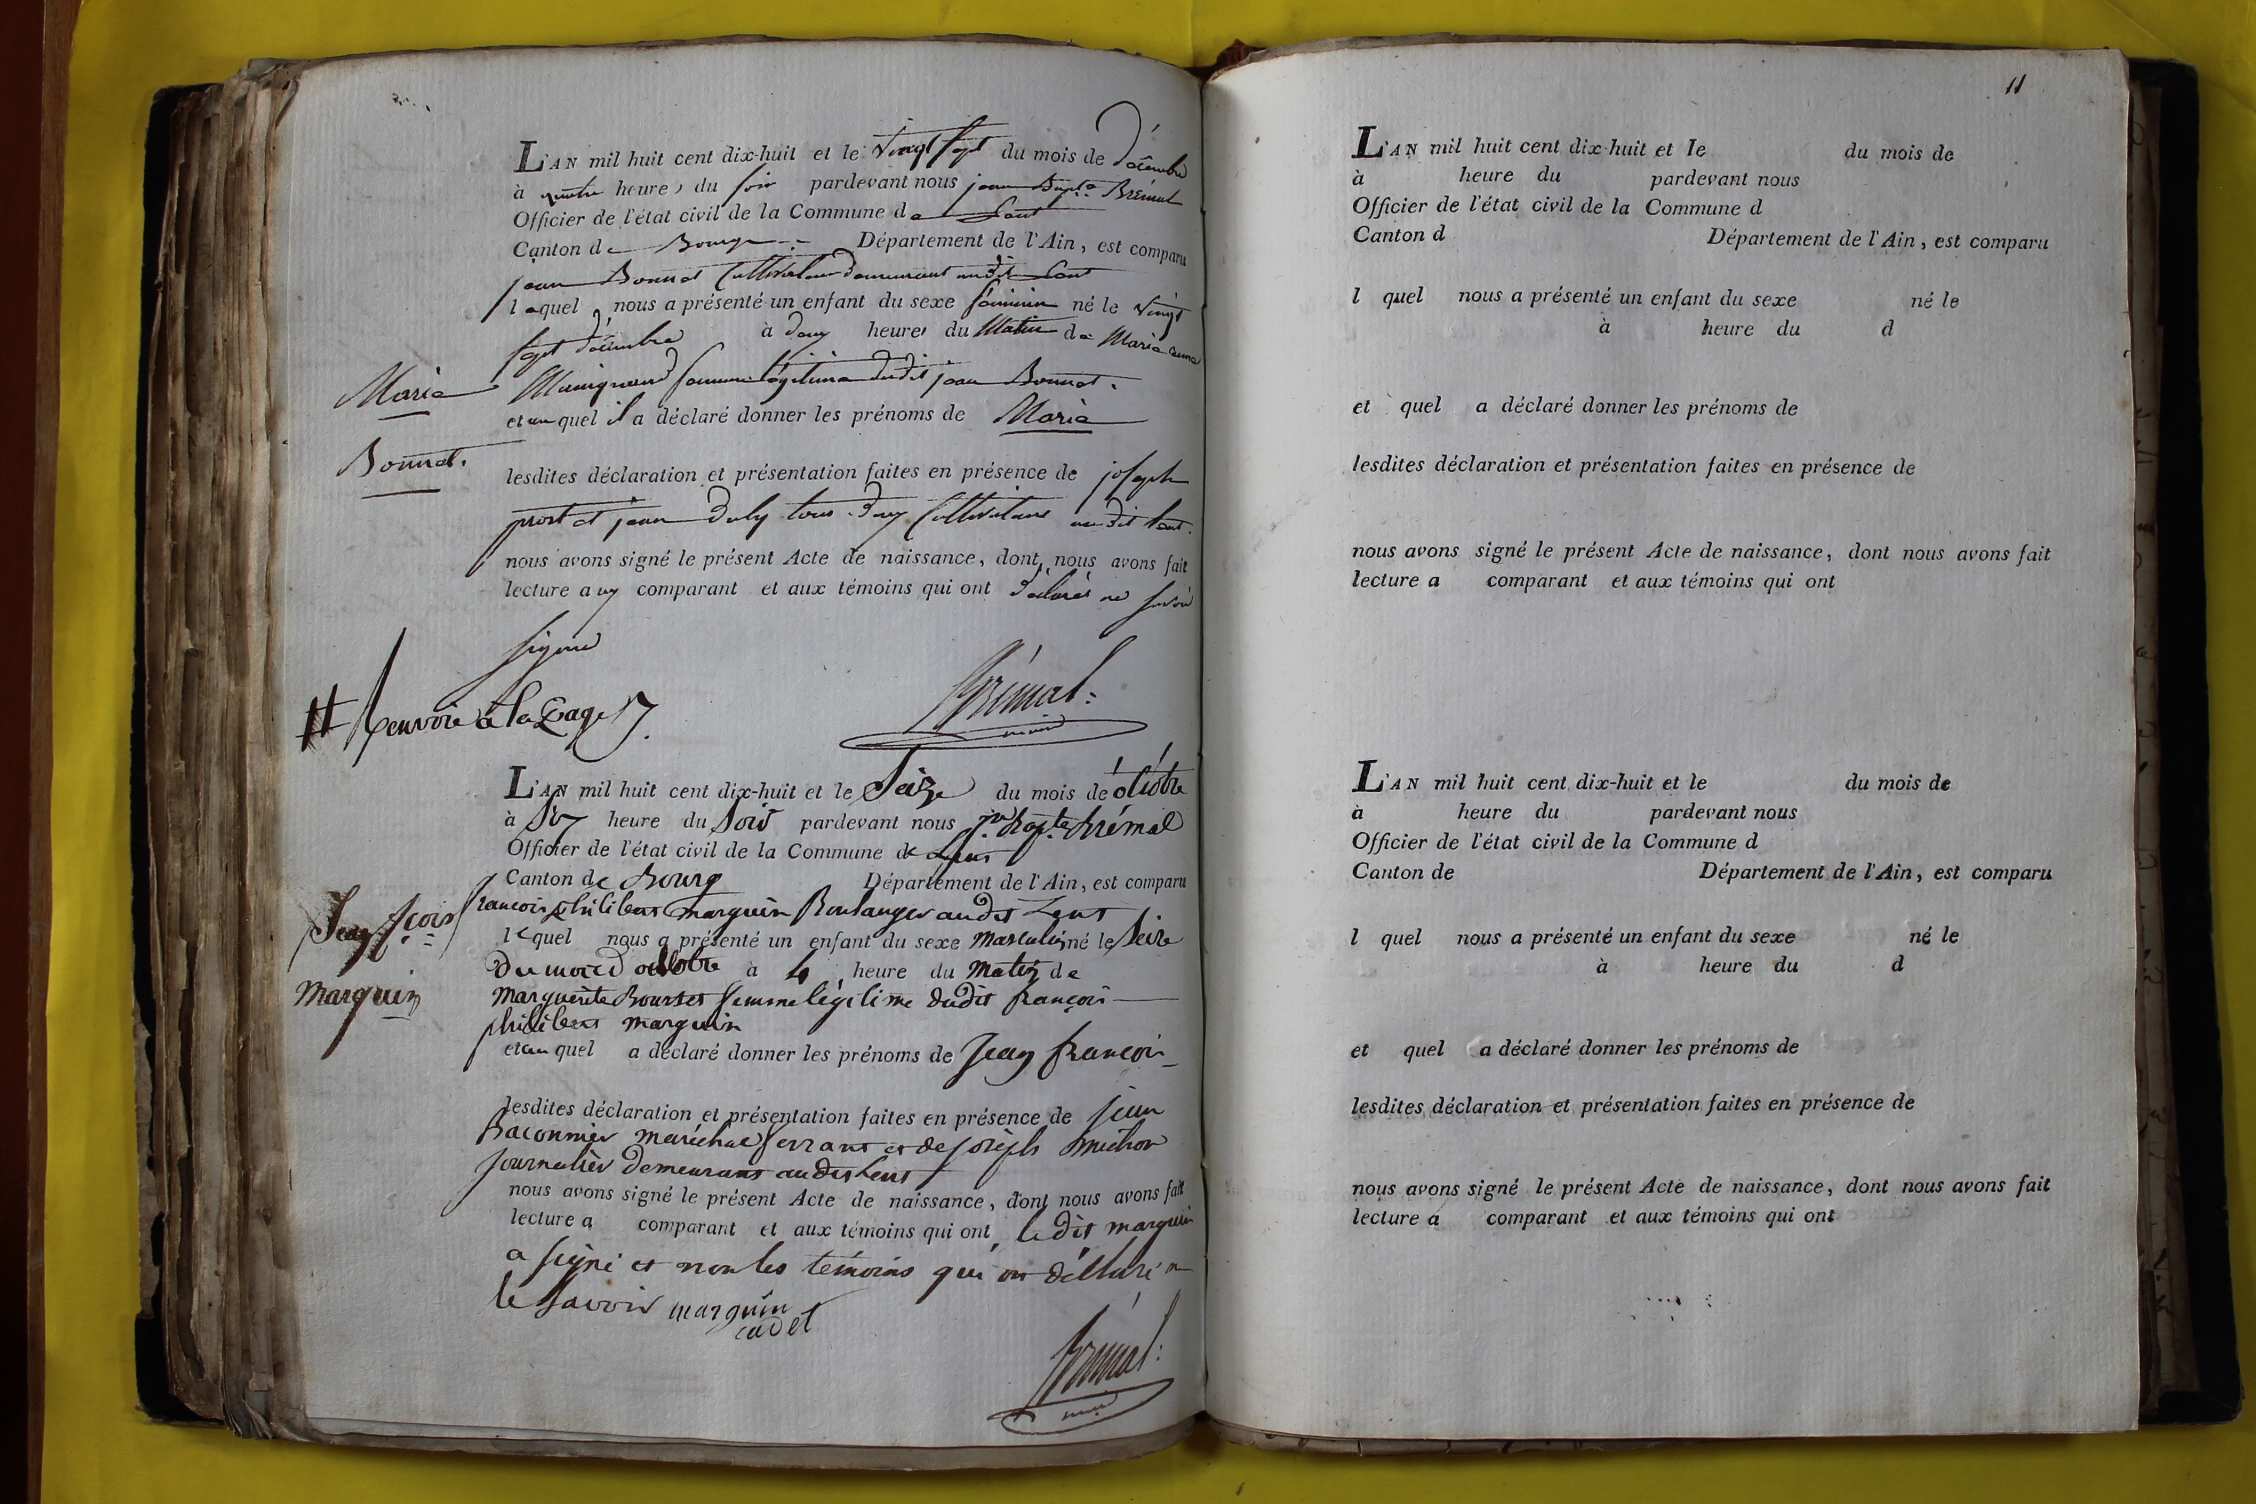 L'AN mil huit cent dix-huit et le vingt sept du mois de décembre
à quatre heures du soir pardevant nous jean Bapte. Brémal
Officier de l'état civil de la Commune de Lent
Canton de Bourg Département de l'Ain, est comparu
jean Bonnet Cultivateur demeurant audit Lent
lequel nous a présenté un enfant du sexe féminin né le vingt
sept décembre à deux heures du Matin de Marie anne
femme légitime dudit jean Bonnet.
et auquel il a déclaré donner les prénoms de Marie
Marie
Bonnet.
lesdites déclaration et présentation faites en présence de joseph
prost et jean duby tous deux Cultivateurs audit Lent.
nous avons signé le présent Acte de naissance, dont nous avons fait
lecture aux comparant et aux témoins qui ont déclarés ne savoir
signer
Brémal:
# Renvoie à la Page 7.
L'AN mil huit cent dix-huit et le Seize du mois de octobre
à Six heure du Soir pardevant nous jn Bapte Brémal
Officier de l'état civil de la Commune de Lent
Canton de Bourg Département de l'Ain, est comparu
françois philibert marguin Boulanger audit Lent
lequel nous a présenté un enfant du sexe masculin né le Seize
du mois d octobre à 4 heure du matin de
marguerite Bourset femme légitime dudit françois
philibert marguin
et auquel a déclaré donner les prénoms de Jean françois
Jean fçois
marguin
lesdites déclaration et présentation faites en présence de jean
Baconnier maréchal ferrant et de joseph michon
journalier demeurant audit Lent
nous avons signé le présent Acte de naissance, dont nous avons fait
lecture a comparant et aux témoins qui ont le dit marguin
a signé et non les témoins qui on déclaré ne
le savoir marguin
cadet
Brémal:
11
L'AN mil huit cent dix-huit et le du mois de
à heure du pardevant nous
Officier de l'état civil de la Commune d
Canton d Département de l'Ain, est comparu
l quel nous a présenté un enfant du sexe né le
à heure du d
et quel a déclaré donner les prénoms de
lesdites déclaration et présentation faites en présence de
nous avons signé le présent Acte de naissance, dont nous avons fait
lecture a comparant et aux témoins qui ont
L'AN mil huit cent dix-huit et le du mois de
à heure du pardevant nous
Officier de l'état civil de la Commune d
Canton de Département de l'Ain, est comparu
l quel nous a présenté un enfant du sexe né le
à heure du d
et quel a déclaré donner les prénoms de
lesdites déclaration et présentation faites en présence de
nous avons signé le présent Acte de naissance, dont nous avons fait
lecture a comparant et aux témoins qui ont